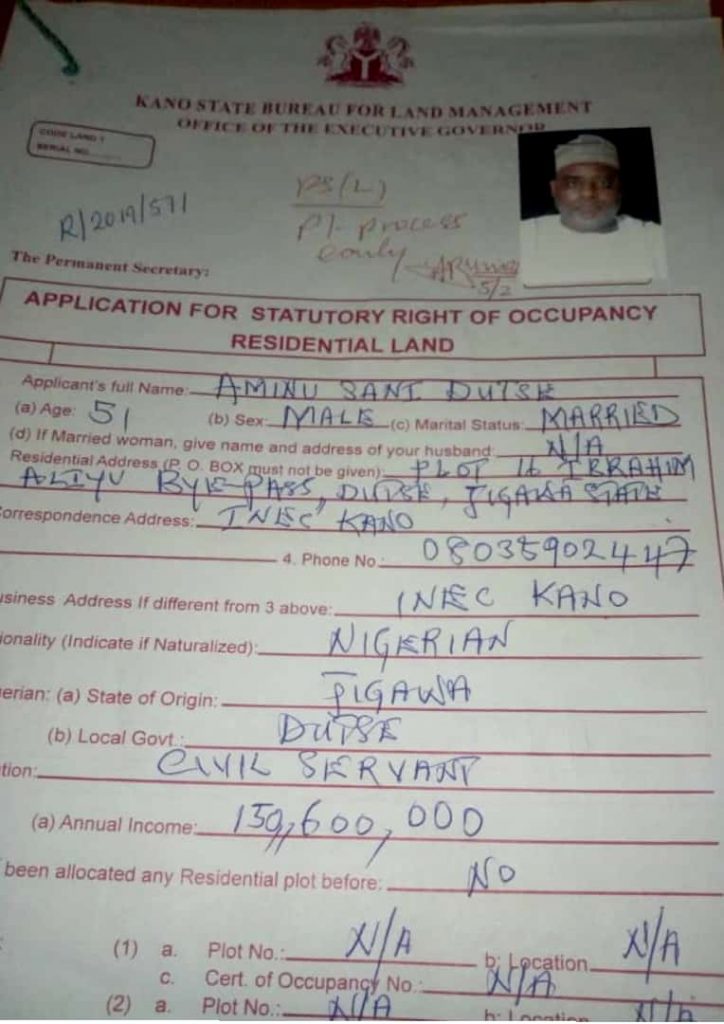 KANO STATE BUREAU FOR LAND MANAGEMENT
OFFICE OF THE EXECUTIVE GOVERNOR
CODE LAND 1
SERIAL NO.
R/2019/571
PS(L)
Pl. process
early
5/2
The Permanent Secretary:
APPLICATION FOR STATUTORY RIGHT OF OCCUPANCY
RESIDENTIAL LAND
Applicant's full Name: AMINU SANI DUTSE
(a) Age: 51 (b) Sex: MALE (c) Marital Status: MARRIED
(d) If Married woman, give name and address of your husband: N/A
Residential Address (P. O. BOX must not be given): PLOT 16 IBRAHIM
ALIYU BYE-PASS, DUTSE, JIGAWA STATE
Correspondence Address: INEC KANO
4. Phone No.: 08035902447
usiness Address If different from 3 above: INEC KANO
ionality (Indicate if Naturalized): NIGERIAN
erian: (a) State of Origin: JIGAWA
(b) Local Govt.: DUTSE
tion: CIVIL SERVANT
(a) Annual Income: 150,600,000
been allocated any Residential plot before: NO
(1) a. Plot No.: N/A b: Location N/A
c. Cert. of Occupancy No.: N/A
(2) a. Plot No.: N/A b: Location N/A